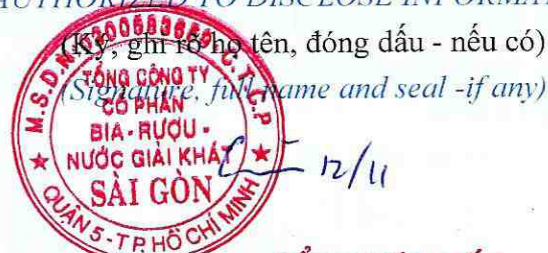 AUTHORIZED TO DISCLOSE INFORMAT
(Ký, ghi rõ họ tên, đóng dấu - nếu có)
(Signature, full name and seal -if any)
M.S.D.N C.T.C.P
TỔNG CÔNG TY
CỔ PHẦN
BIA - RƯỢU -
NƯỚC GIẢI KHÁT
SÀI GÒN
QUẬN 5 - T.P. HỒ CHÍ MINH
12/11